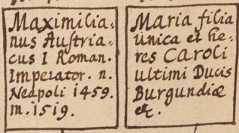 Maximilia-
nus Austria-
cus I Roman.
Imperator. n.
Neapoli 1459.
m. 1519.
Maria filia
unica et he-
res Caroli
ultimi Ducis
Burgundiæ
etc.